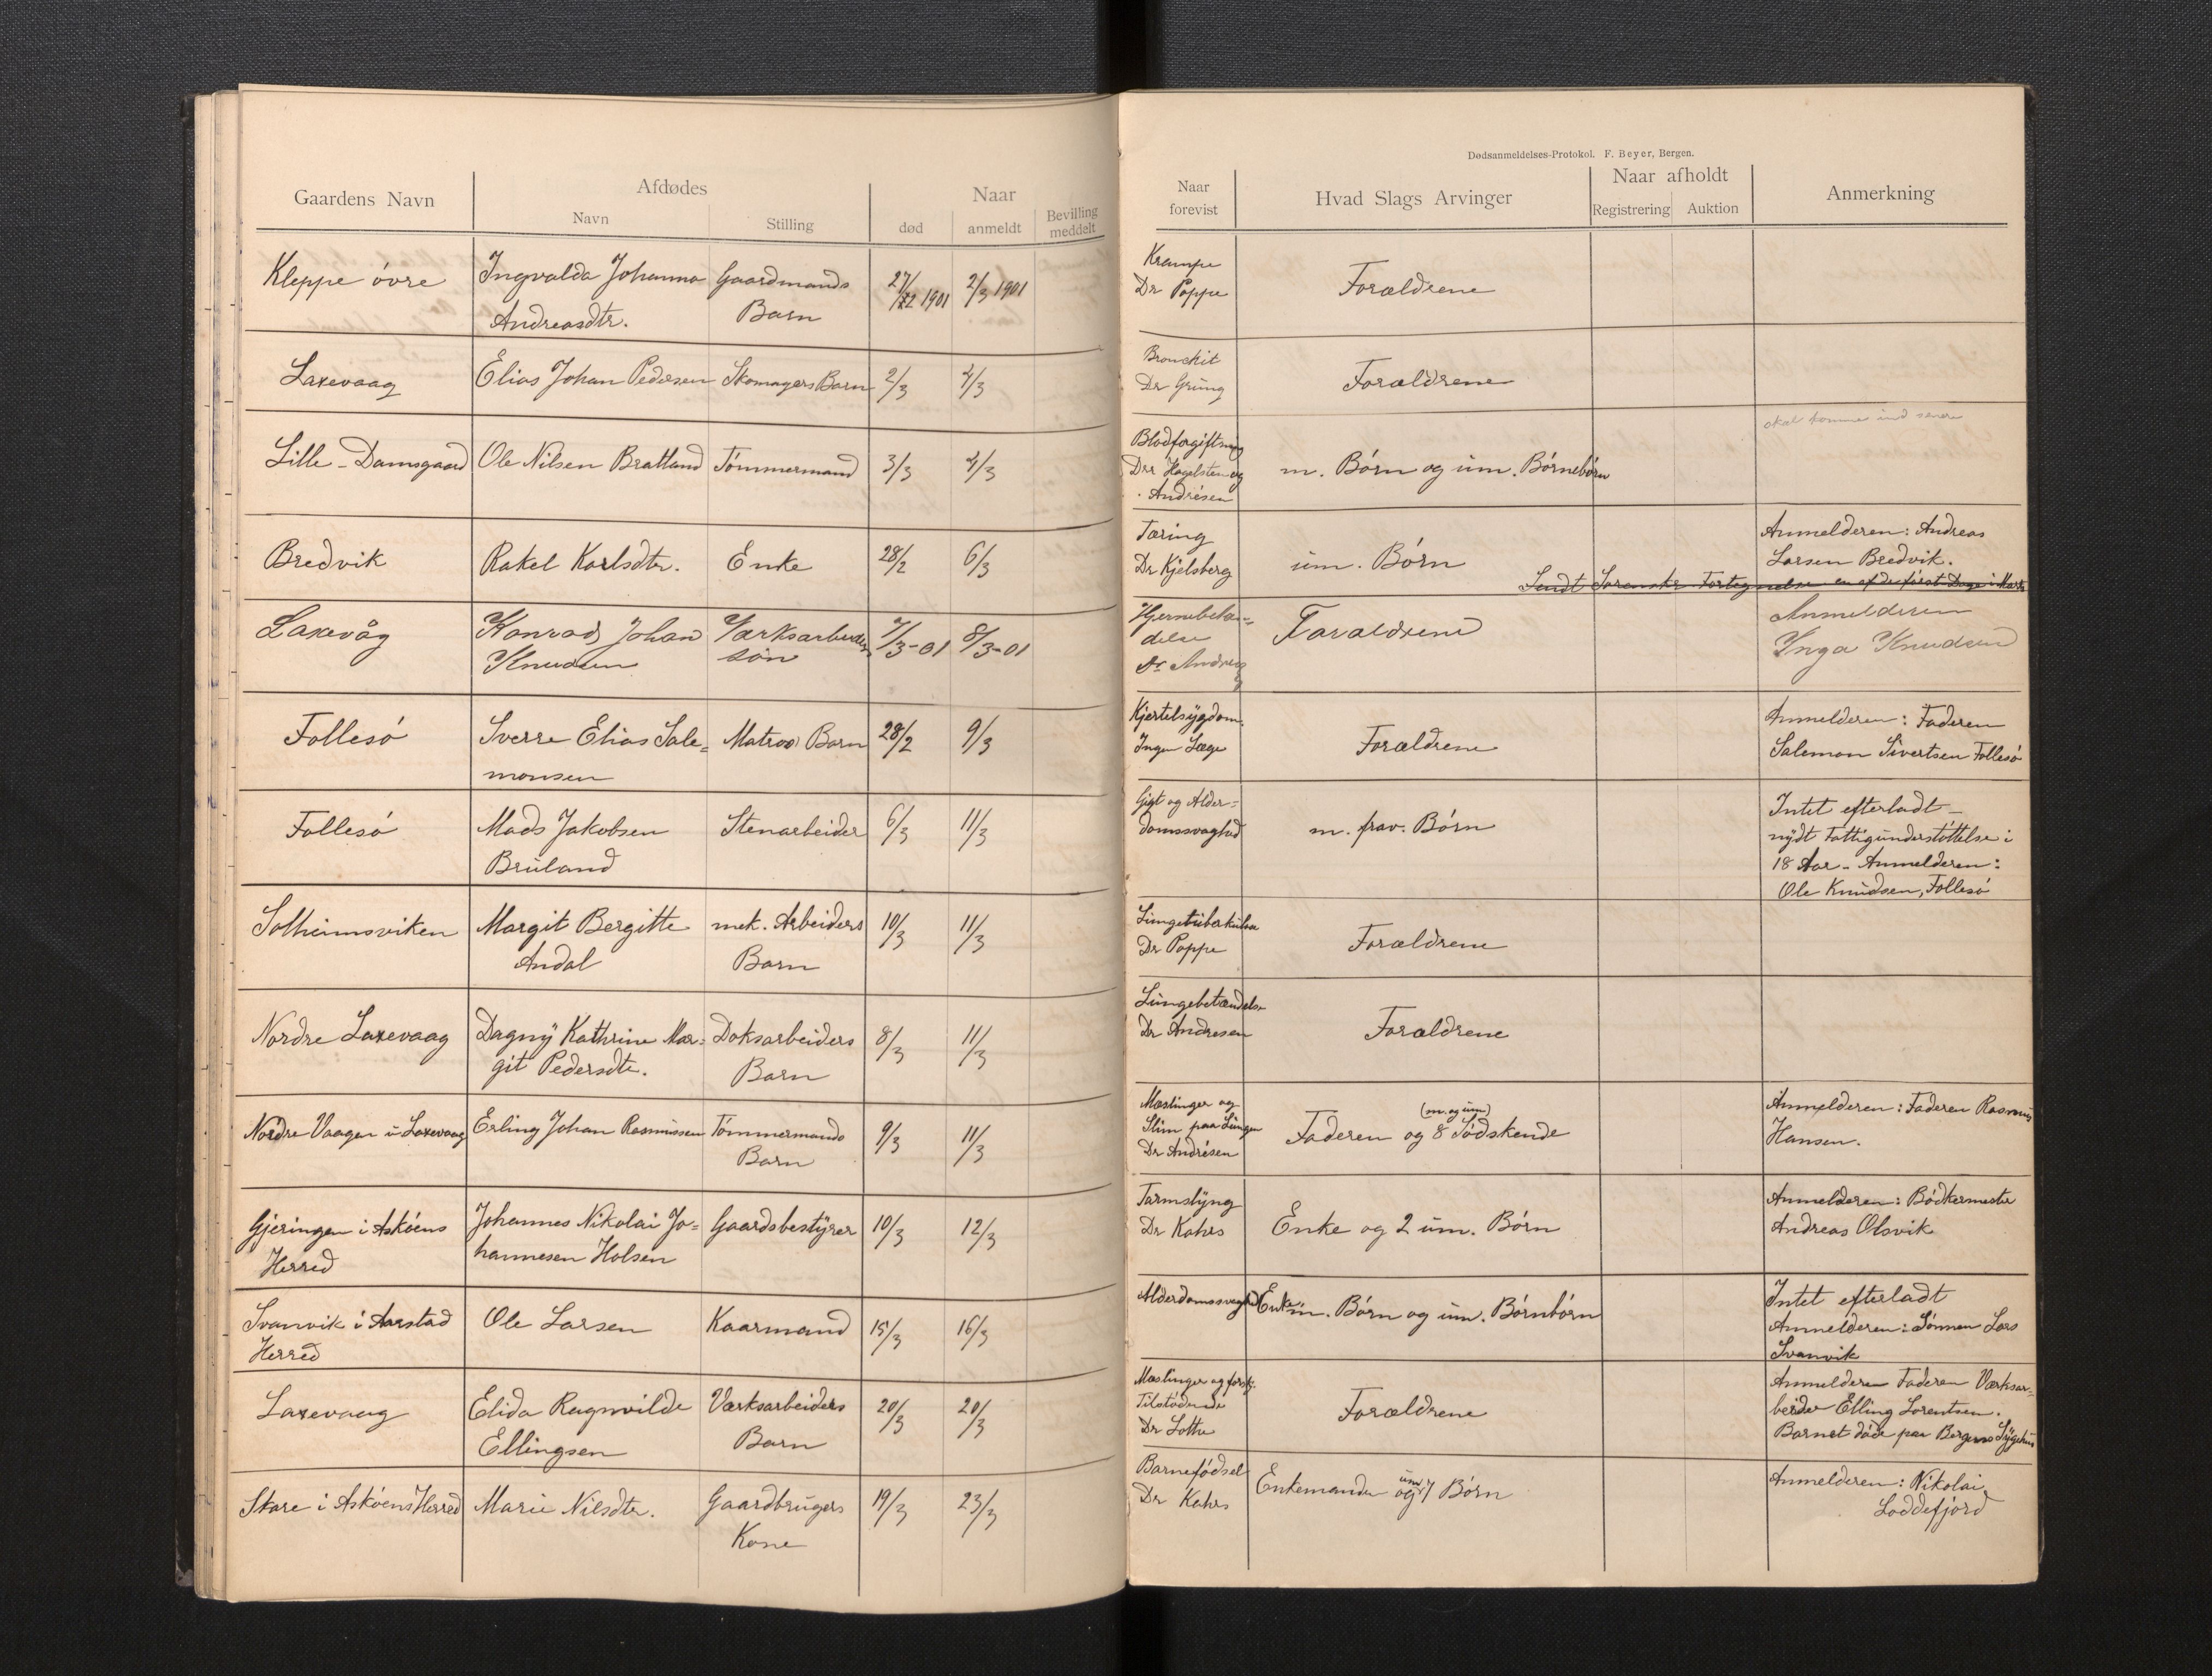 Dødsanmeldelses-Protokol. F. Beyer, Bergen.
Gaardens Navn
Afdødes
Navn
Stilling
Naar
død
anmeldt
Bevilling
meddelt
Naar
forevist
Hvad Slags Arvinger
Naar afholdt
Registrering
Auktion
Anmerkning
Kleppe övre
Ingvalda Johanna
Andreasdtr.
Gaardmands
Barn
27/2 1901
2/3 1901
Krampe
Dr Poppe
Forældrene
Laxevaag
Elias Johan Pedersen
Skomagers Barn
2/3
4/3
Bronchit
Dr Grung
Forældrene
Lille-Damsgaard
Ole Nilsen Bratland
Tömmermand
3/3
4/3
Blodforgiftning
Drr Hagelsten og
Andrésen
m. Börn og um. Börnebörn
skal komme ind senere
Bredvik
Rakel Karlsdtr.
Enke
28/2
6/3
Tæring
Dr Kjelsberg
um. Börn
Anmelderen: Andreas
Larsen Bredvik.
Sendt Sorenskr Fortegnelse en af de först Dage i Marts
Laxevåg
Konrad Johan
Knudsen
Værksarbeiders
sön
7/3-01
8/3-01
Hjernebetæn=
delse
Dr Andresen
Foraldrene
Anmelderen
Inga Knudsen
Follesö
Sverre Elias Sale=
monsen
Matros Barn
28/2
9/3
Kjertelsygdom.
Ingen Læge
Forældrene
Anmelderen: Faderen
Salemon Sivertsen Follesö
Follesö
Mads Jakobsen
Bruland
Stenarbeider
6/3
11/3
Gigt og Alder=
domssvaghed
m. frav. Börn
Intet efterladt -
nydt Fattigunderstöttelse i
18 Aar - Anmelderen:
Ole Knudsen, Follesö
Solheimsviken
Margit Bergitte
Andal
mek. Arbeiders
Barn
10/3
11/3
Lungetuberkulose
Dr Poppe
Forældrene
Nordre Laxevaag
Dagny Kathrine Mar=
git Pedersdtr.
Doksarbeiders
Barn
8/3
11/3
Lungebetændelse
Dr Andresen
Forældrene
Nordre Vaagen i Laxevaag
Erling Johan Rasmussen
Tömmermands
Barn
9/3
11/3
Mæslinger og
Slim paa Lungen
Dr Andrésen
(m. og um)
Faderen og 8 Södskende
Anmelderen: Faderen Rasmus
Hansen.
Gjeringen i Asköens
Herred
Johannes Nikolai Jo=
hannesen Holsen
Gaardsbestyrer
10/3
12/3
Tarmslyng
Dr Kahrs
Enke og 2 um. Börn
Anmelderen: Bödkermester
Andreas Olsvik
Svanvik i Aarstad
Herred
Ole Larsen
Kaarmand
15/3
16/3
Alderdomssvaghed
Enke m. Börn og um. Börnbörn
Intet efterladt
Anmelderen: Sönnen Lars
Svanvik
Laxevaag
Elida Ragnvilde
Ellingsen
Værksarbeiders
Barn
20/3
20/3
Mæslinger og forsk.
Tilstödende
Dr Lothe
Forældrene
Anmelderen Faderen Værksar=
beider Elling Lorentsen.
Barnet döde paa Bergens Sygehus
Skare i Asköens Herred
Marie Nilsdtr.
Gaardbrugers
Kone
19/3
23/3
Barnefödsel
Dr Kahrs
Enkemanden og um. 7 Börn
Anmelderen: Nikolai
Loddefjord